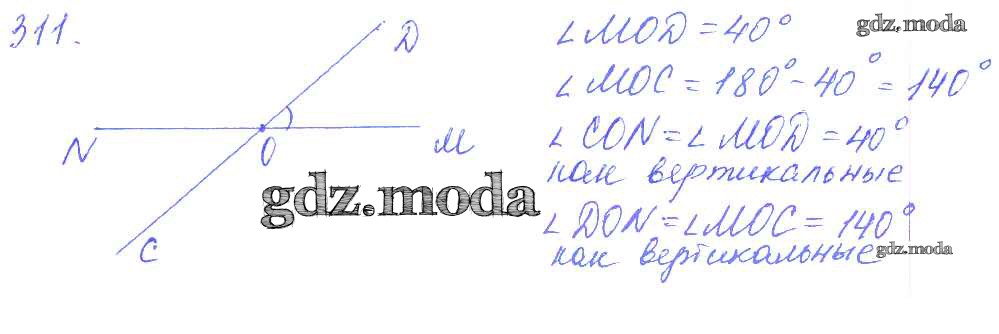 311.
D
N
O
M
C
∠MOD = 40°
∠MOC = 180° - 40° = 140°
∠CON = ∠MOD = 40°
как вертикальные
∠DON = ∠MOC = 140°
как вертикальные
gdz.moda
gdz.moda
gdz.moda